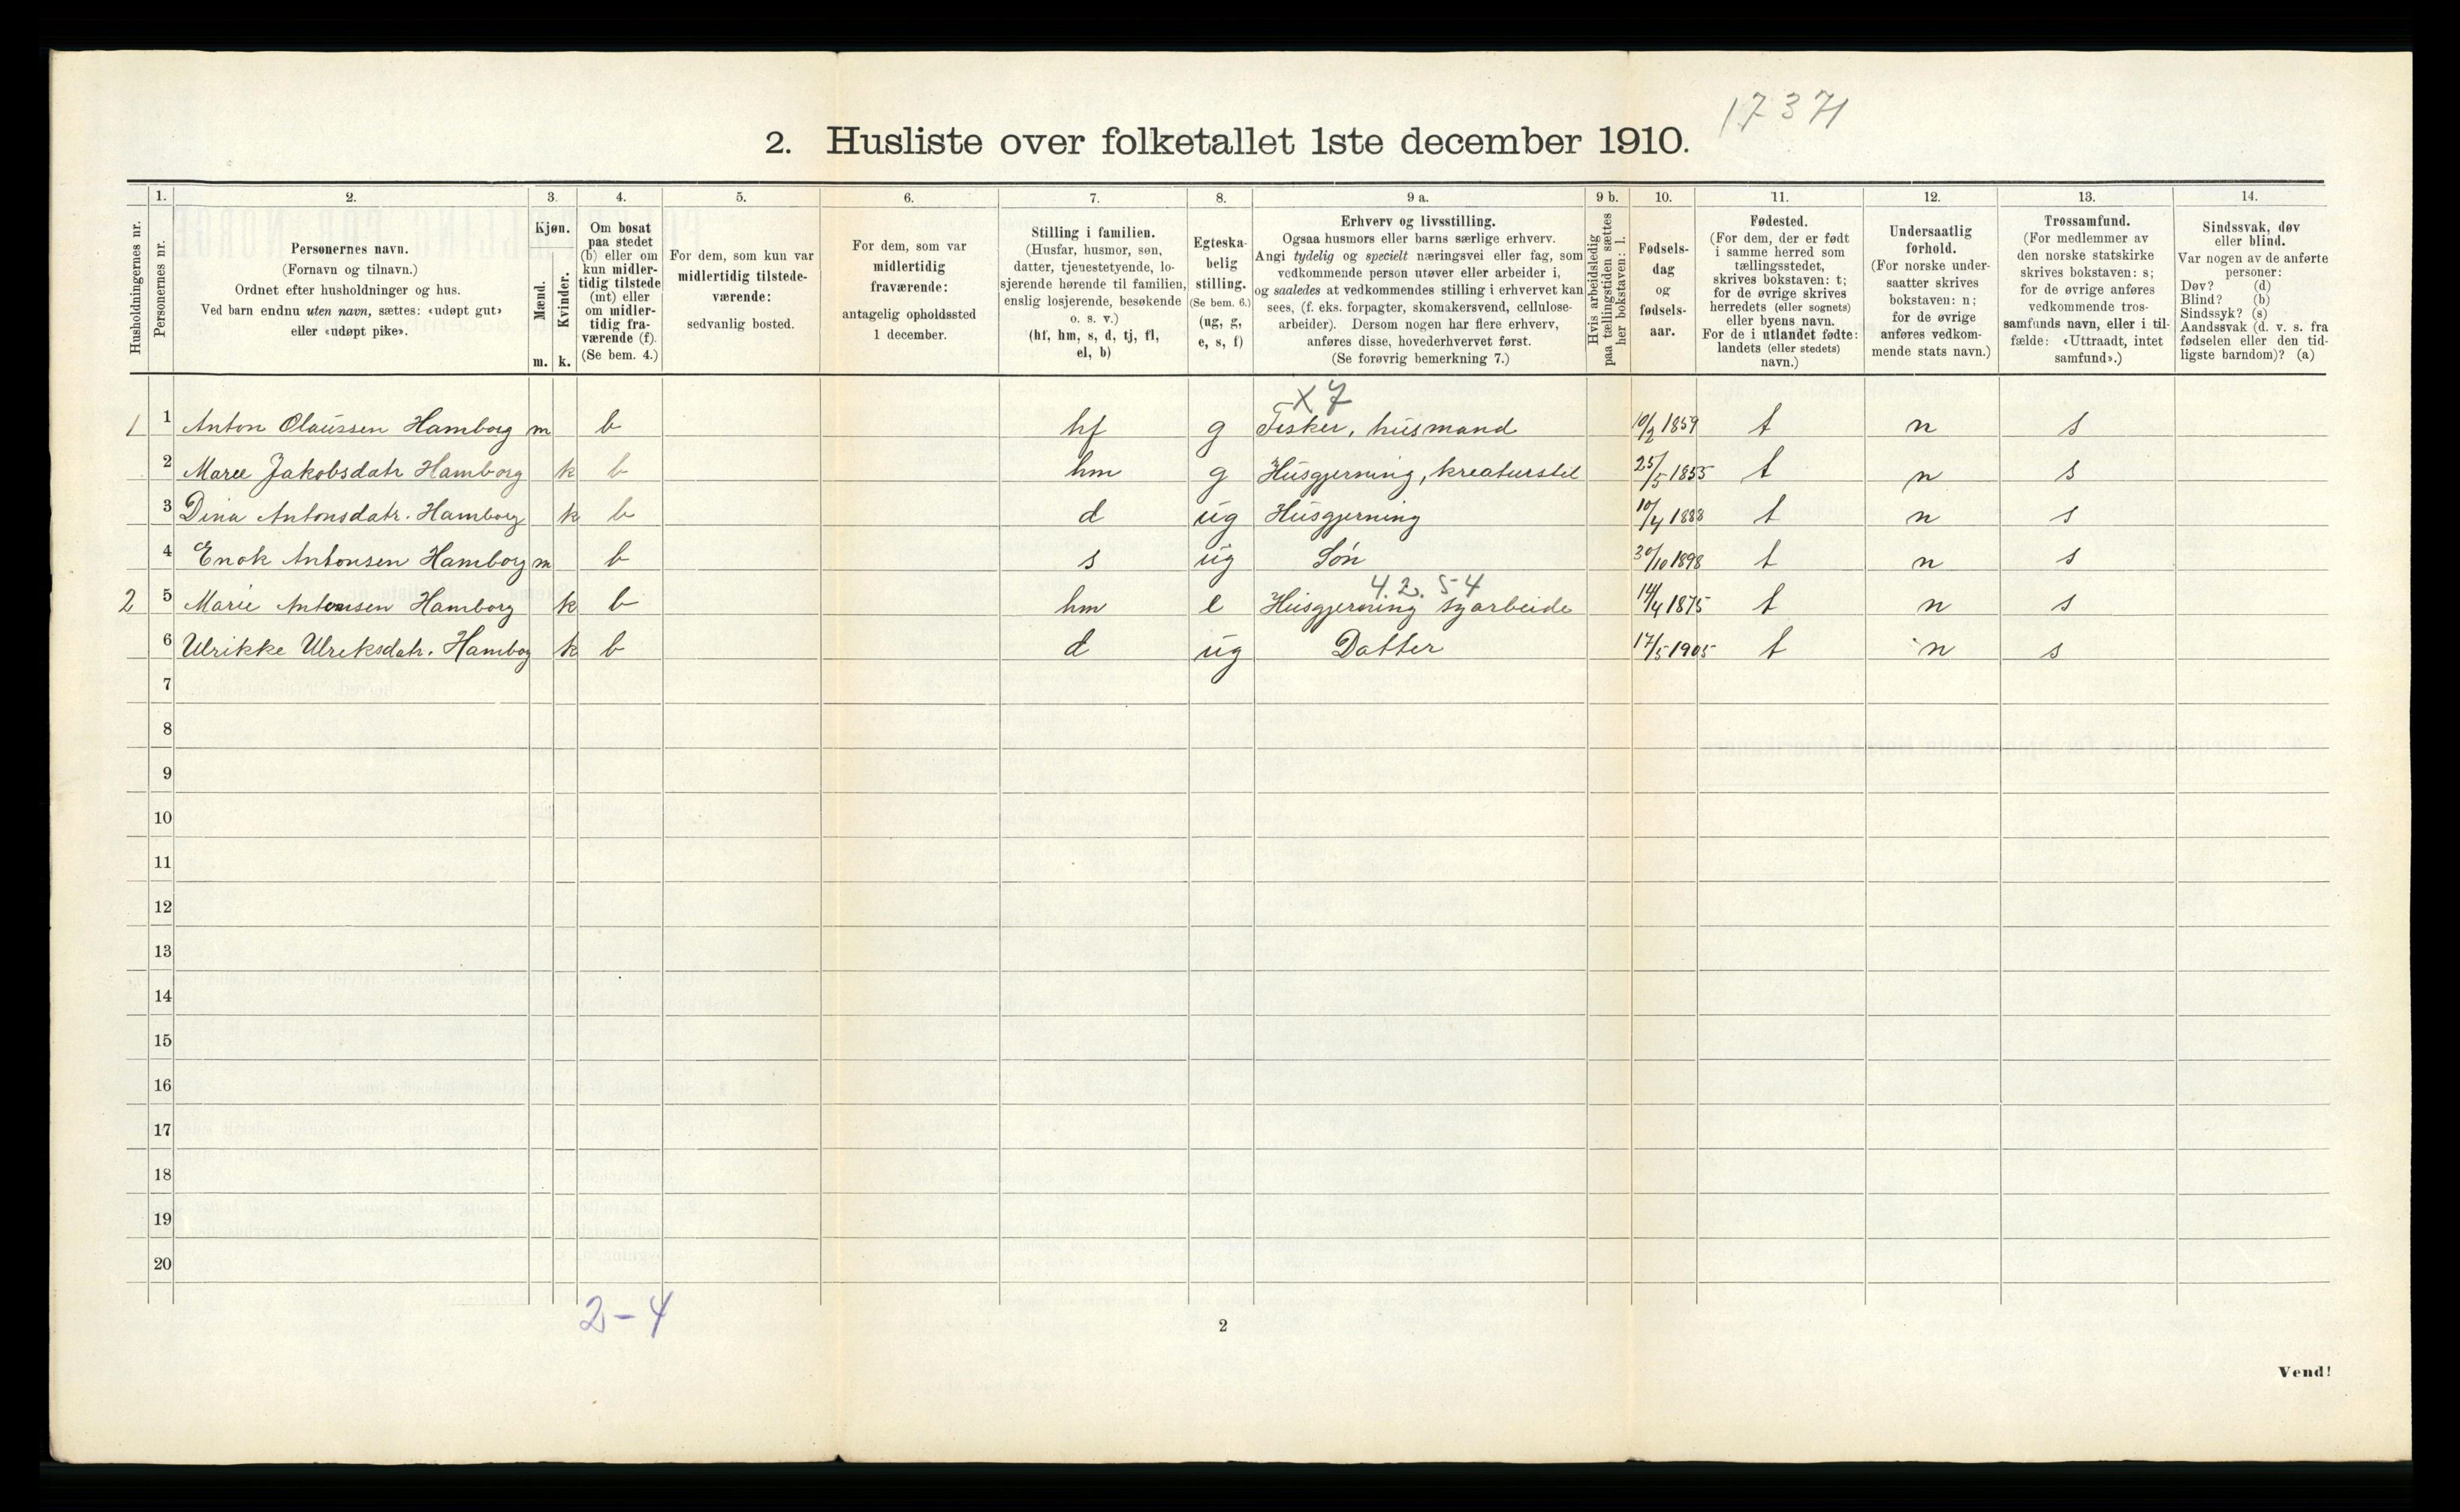 17371
2. Husliste over folketallet 1ste december 1910.
Husholdningernes nr.
1. Personernes nr.
2. Personernes navn. (Fornavn og tilnavn.) Ordnet efter husholdninger og hus. Ved barn endnu uten navn, sættes: «udøpt gut» eller «udøpt pike».
3. Kjøn. Mænd. m. Kvinder. k.
4. Om bosat paa stedet (b) eller om kun midlertidig tilstede (mt) eller om midlertidig fraværende (f). (Se bem. 4.)
5. For dem, som kun var midlertidig tilstedeværende: sedvanlig bosted.
6. For dem, som var midlertidig fraværende: antagelig opholdssted 1 december.
7. Stilling i familien. (Husfar, husmor, søn, datter, tjenestetyende, losjerende hørende til familien, enslig losjerende, besøkende o. s. v.) (hf, hm, s, d, tj, fl, el, b)
8. Egteskabelig stilling. (Se bem. 6.) (ug, g, e, s, f)
9 a. Erhverv og livsstilling. Ogsaa husmors eller barns særlige erhverv. Angi tydelig og specielt næringsvei eller fag, som vedkommende person utøver eller arbeider i, og saaledes at vedkommendes stilling i erhvervet kan sees, (f. eks. forpagter, skomakersvend, cellulosearbeider). Dersom nogen har flere erhverv, anføres disse, hovederhvervet først. (Se forøvrig bemerkning 7.)
9 b. Hvis arbeidsledig paa tællingstiden sættes her bokstaven: l.
10. Fødselsdag og fødselsaar.
11. Fødested. (For dem, der er født i samme herred som tællingsstedet, skrives bokstaven: t; for de øvrige skrives herredets (eller sognets) eller byens navn. For de i utlandet fødte: landets (eller stedets) navn.)
12. Undersaatlig forhold. (For norske undersaatter skrives bokstaven: n; for de øvrige anføres vedkommende stats navn.)
13. Trossamfund. (For medlemmer av den norske statskirke skrives bokstaven: s; for de øvrige anføres vedkommende trossamfunds navn, eller i tilfælde: «Uttraadt, intet samfund».)
14. Sindssvak, døv eller blind. Var nogen av de anførte personer: Døv? (d) Blind? (b) Sindssyk? (s) Aandssvak (d. v. s. fra fødselen eller den tidligste barndom)? (a)
X 7
1 1 Anton Olaussen Hamborg m b hf g Fisker, husmand 10/2 1859 t n s
2 Maree Jakobsdatr Hamborg k b hm g Husgjerning, kreaturstel 25/5 1855 t n s
3 Dina Antonsdatr. Hamborg k b d ug Husgjerning 10/4 1888 t n s
4 Enok Antonsen Hamborg m b s ug Søn 30/10 1898 t n s
4.2. 5-4
2 5 Marie Antonsen Hamborg k b hm e Husgjerning syarbeide 14/4 1875 t n s
6 Ulrikke Ulreksdatr. Hamborg k b d ug Datter 17/5 1905 t n s
7
8
9
10
11
12
13
14
15
16
17
18
19
20
2-4
2
Vend!